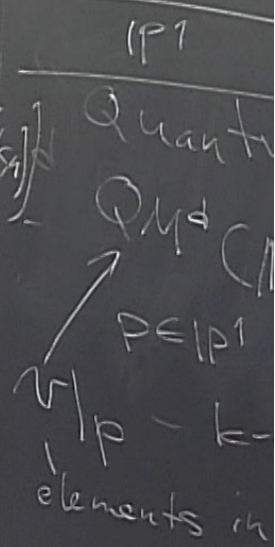 IP1
Quanti
QM^d (M
p ∈ IP1
v|p - k-
elements in